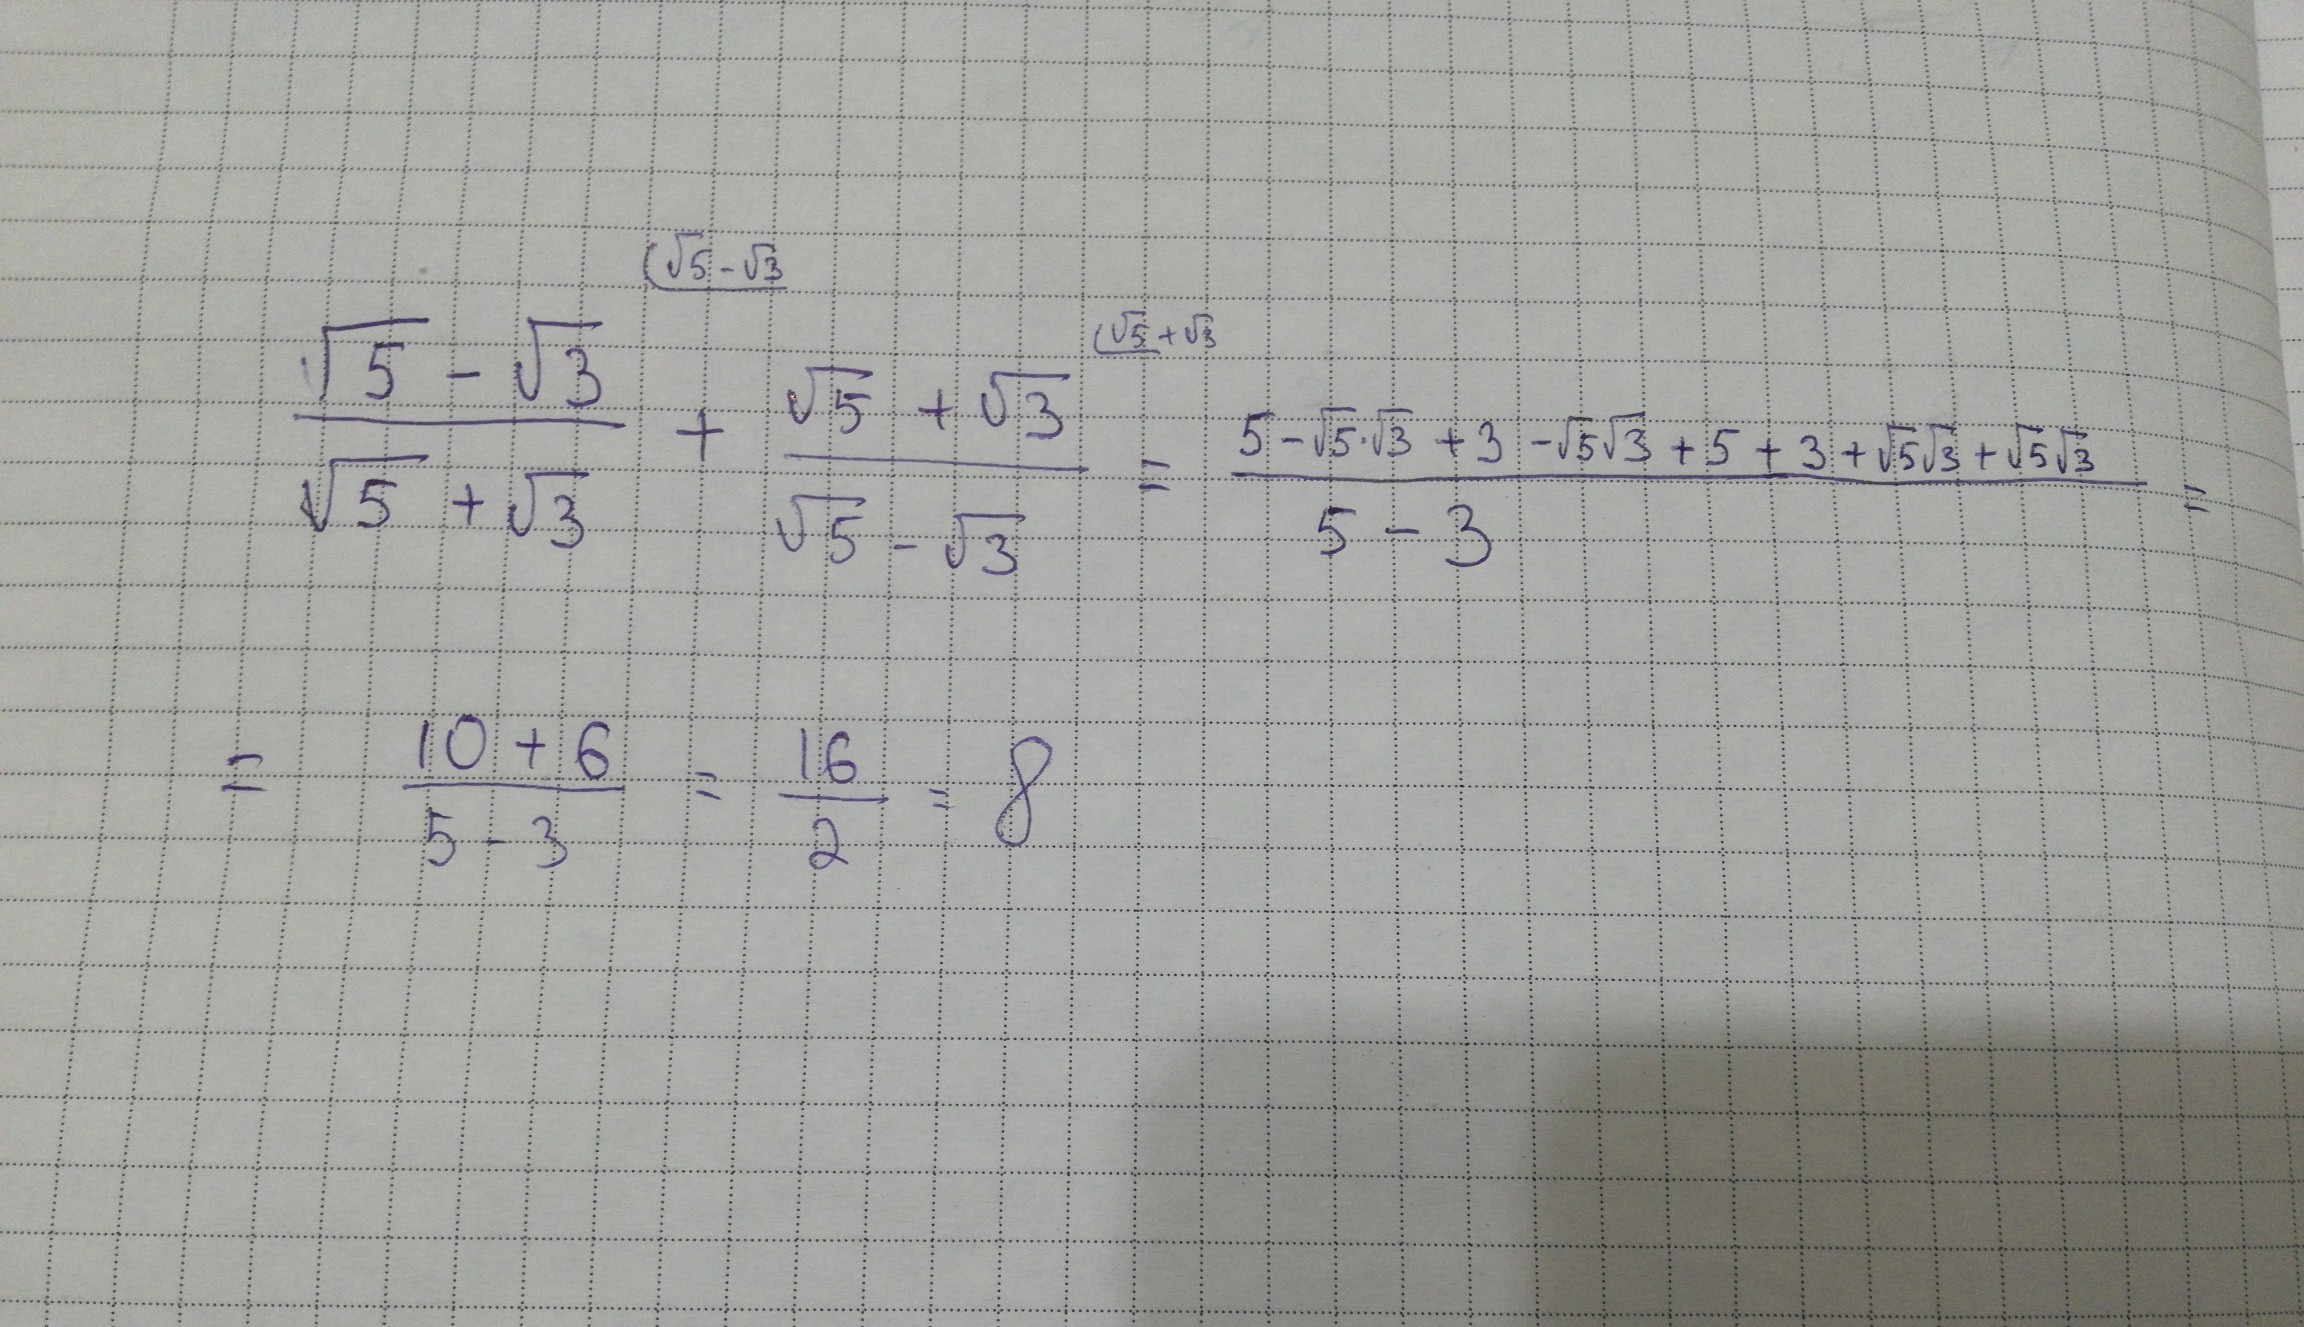 (√5 - √3
(√5 + √3
(√5 - √3)/(√5 + √3) + (√5 + √3)/(√5 - √3) = (5 - √5·√3 + 3 - √5√3 + 5 + 3 + √5√3 + √5√3)/(5 - 3) =
= (10 + 6)/(5 - 3) = 16/2 = 8